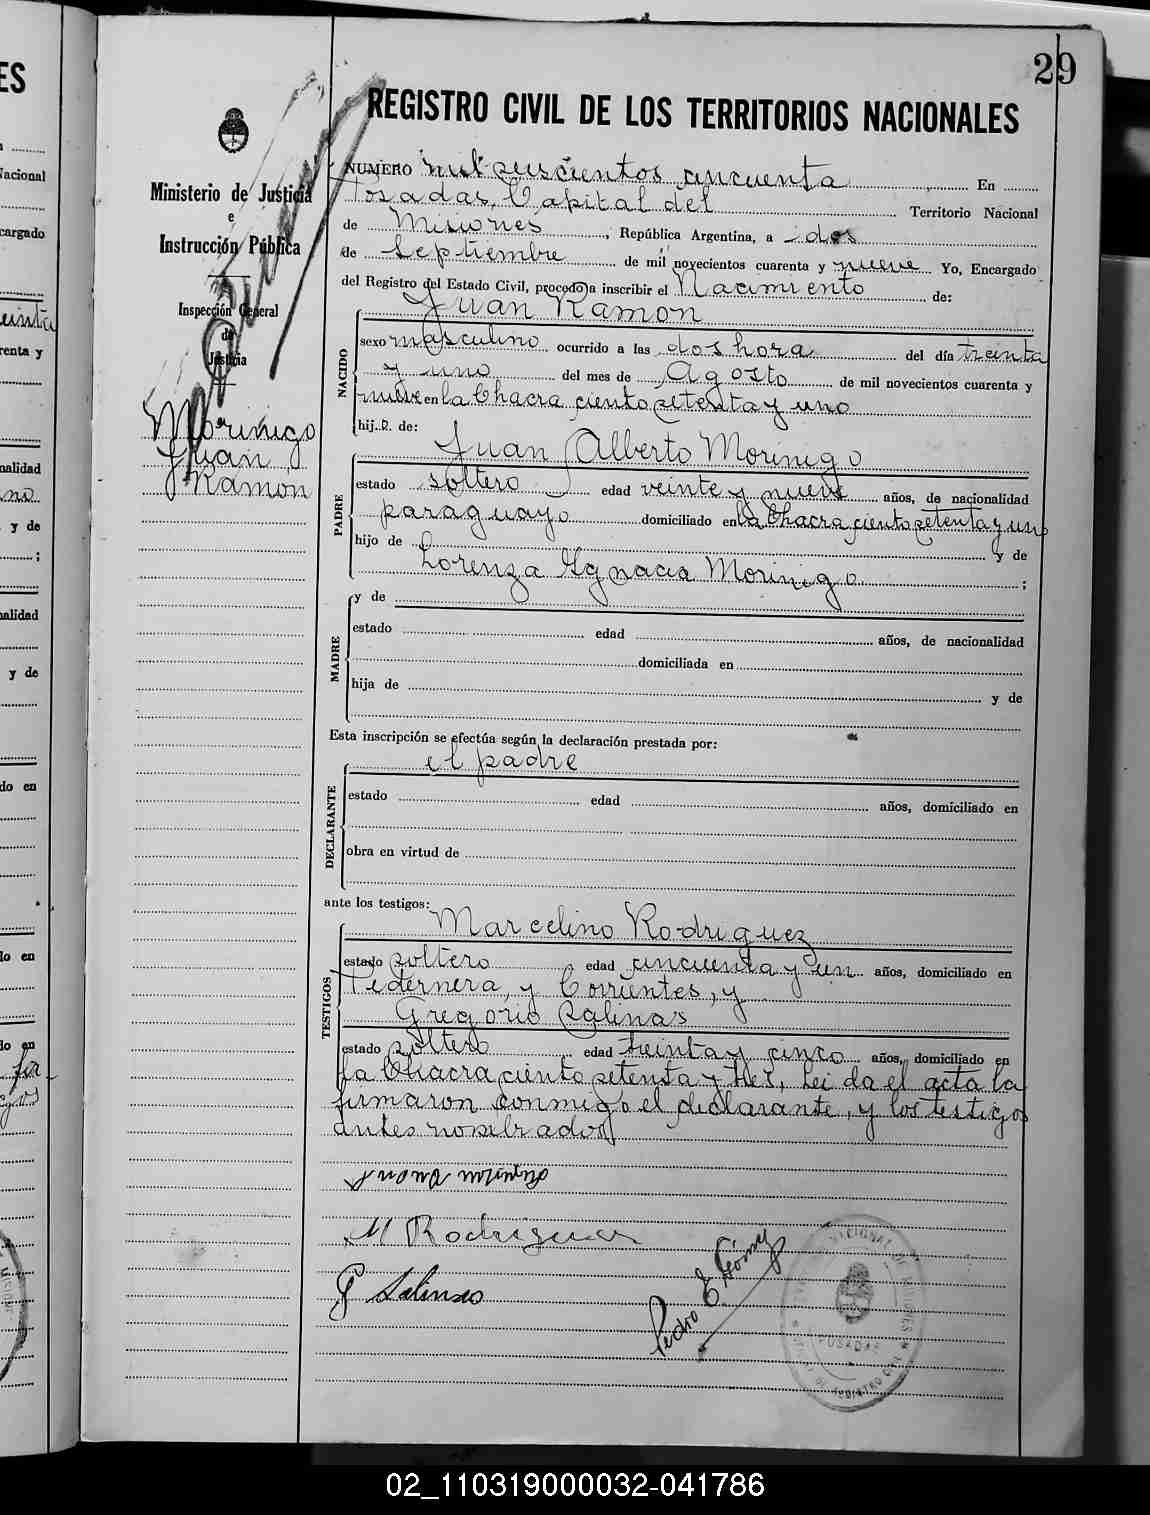 29
REGISTRO CIVIL DE LOS TERRITORIOS NACIONALES
Ministerio de Justicia
e
Instrucción Pública
Inspección General
de
Justicia
Morinigo
Juan
Ramon
NUMERO mil seiscientos cincuenta En
Posadas, Capital del Territorio Nacional
de Misiones, República Argentina, a dos
de Septiembre de mil novecientos cuarenta y nueve Yo, Encargado
del Registro del Estado Civil, procedo a inscribir el Nacimiento de:
Juan Ramon
NACIDO
sexo masculino ocurrido a las dos hora del día treinta
y uno del mes de Agosto de mil novecientos cuarenta y
nueve en la Chacra ciento setenta y uno
hij.o. de:
Juan Alberto Morinigo
PADRE
estado soltero edad veinte y nueve años, de nacionalidad
paraguayo domiciliado en la Chacra ciento setenta y uno
hijo de y de
Lorenza Ygnacia Morinigo ;
MADRE
y de
estado edad años, de nacionalidad
domiciliada en
hija de y de
Esta inscripción se efectúa según la declaración prestada por:
el padre
DECLARANTE
estado edad años, domiciliado en
obra en virtud de
ante los testigos:
Marcelino Rodriguez
TESTIGOS
estado soltero edad cincuenta y un años, domiciliado en
Pedernera, y Corrientes, y
Gregorio Salinas
estado soltero edad treinta y cinco años, domiciliado en
la Chacra ciento setenta y tres, Lei da el acta la
firmaron conmigo el declarante, y los testigos
antes nombrados
M Rodriguez
G Salinas
Pedro E. Gómez
POSADAS
02_110319000032-041786